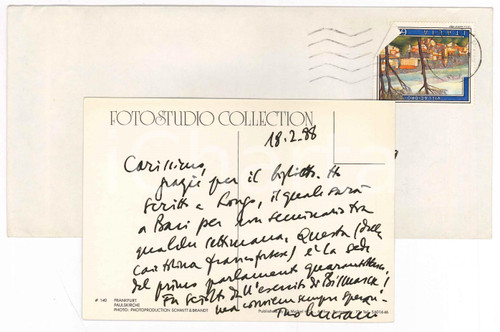 ITALIA
FOTOSTUDIO COLLECTION
18.2.88
Carissimo,
grazie per il biglietto. Ho
scritto a Longo, il quale sarà
a Bari per un seminario tra
qualche settimana. Questa (della
cartolina francofortese) è la sede
del primo parlamento quarantottesco.
Fu sciolto dall'esercito di Bismarck!
ma conviene sempre sperare
# 140 FRANKFURT
PAULSKIRCHE
PHOTO: PHOTOPRODUCTION SCHMITT & BRANDT